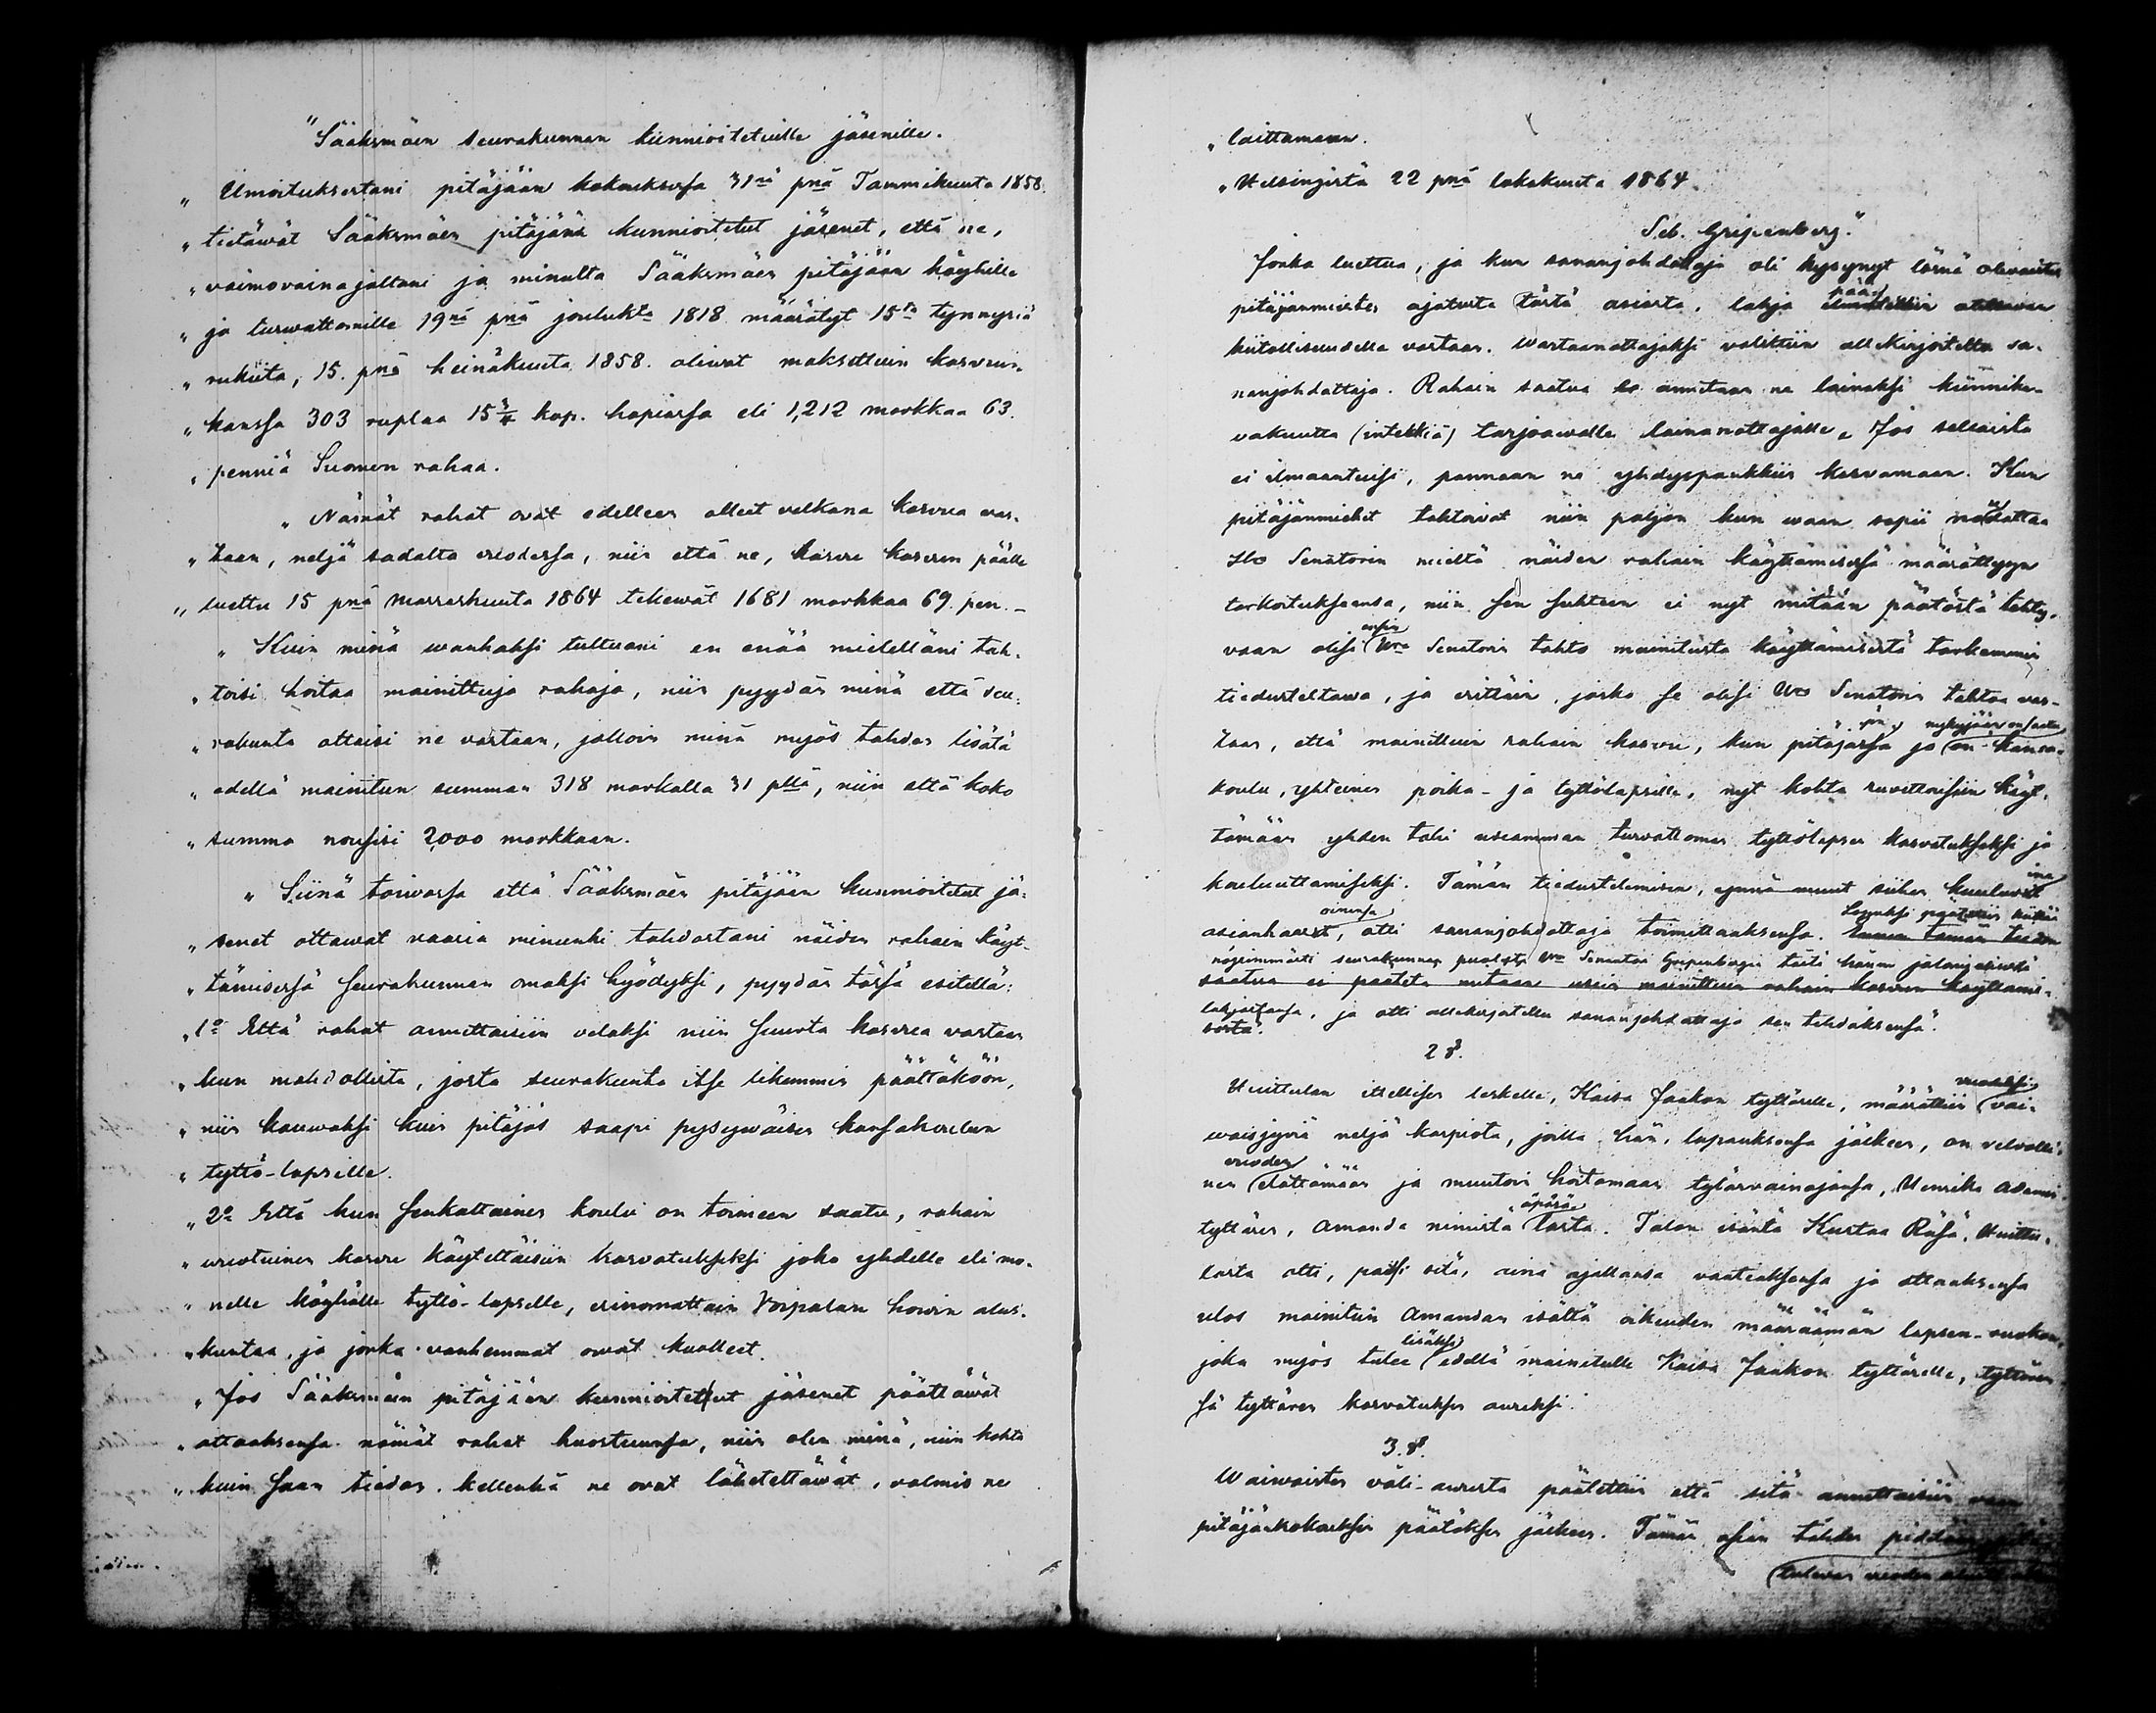 "Sääksmäen seurakunnan kunnioitetuille jäsenille.
" Ilmoituksestani pitäjään kokouksessa 31nä pnä Tammikuuta 1858.
" tietäwät Sääksmäen pitäjänä kunnioitetut jäsenet, että ne,
" vaimovainajaltani ja minulta Sääksmäen pitäjään köyhille
" ja turwattomille 19nä pnä joulukta 1818 määrätyt 15ta tynnyriä
" rukiita, 15. pnä heinäkuuta 1858. oliwat maksettuin kasvuin-
" kanssa 303 ruplaa 15 3/4 kop. hopiassa eli 1,212 markkaa 63.
" penniä Suomen rahaa.
" Nämät rahat ovat edelleen olleet velkana kasvua vas-
" taan, neljä sadalta vuodessa, niin että ne, kasvu kasvun päälle
" luettu 15 pnä Marraskuuta 1864 tekewät 1681 markkaa 69 pen. _
" Kuin minä wanhaksi tultuani en enää mielelläni tah-
" toisi hoitaa mainittuja rahoja, niin pyydän minä että seu-
" rakunta ottaisi ne vastaan, jolloin minä myös tahdon lisätä
" edellä mainitun summan 318 markalla 31 pllä, niin että koko
" summa nousisi 2000 markkaan.
" Siinä toiwossa että Sääksmäen pitäjään kunnioitetut jä-
" senet ottawat vaaria minunki tahdostani näiden rahain käyt-
" tämisessä seurakunnan omaksi hyödyksi, pyydän tässä esitellä:
" 1o Että rahat annettaisiin velaksi niin suurta kasvua vastaan
" kun mahdollista, josta seurakunta itse likemmin päättäköön,
" niin kauwaksi kuin pitäjäs saapi pysywäisen kansakoulun
" tyttö-lapsille.
" 2o Että kun senkaltainen koulu on toimeen saatu, rahain
" vuotuinen kasvu käytettäisiin kasvatukseksi joko yhdelle eli mo-
" nelle köyhälle tyttö-lapselle, erinomattain Voipalan howin alus-
" kuntaa, ja jonka vanhemmat owat kuolleet.
" Jos Sääksmäen pitäjään kunnioitetut jäsenet päättäwät
" ottaaksensa nämät rahat huostuunsa, niin olen minä, niin kohta
" kuin saan tiedon kellenkä ne ovat lähetettäwät, valmis ne
" laittamaan.
" Helsingistä 22 pnä lokakuuta 1864.
Seb. Gripenberg."
Jonka luettua, ja kun sananjohdattaja oli kysynyt läsnä olevaisten
pitäjänmiesten ajatusta tästä asiasta, lahja
kiitollisuudella vastaan. Wastaanottajaksi valittiin allekirjoitettu sa-
nanjohdattaja. Rahain saatua annetaan ne lainaksi kiinnike-
vakuutta (intekkiä) tarjoawalle lainanottajalle. Jos sellaista
ei ilmaantuisi, pannaan ne yhdyspankkiin kasvamaan. Kun
pitäjänmiehet tahtoivat niin paljon kun waan sopii noudattaa
Hro Senatorin mieltä näiden rahain käyttämisessä määrättyyn
tarkoitukseensa, niin sen suhteen ei nyt mitään päätöstä tehty,
ensin
vaan olisi Hra Senatorin tahto mainitusta käyttämisestä tarkemmin
tiedusteltawa, ja erittäin, josko se olisi Hra Senatorin tahtoa vas-
nykyjään on saatu
taan, että mainittuin rahain kasvu, kun pitäjässä jo on kansa-
koulu, yhteinen poika- ja tyttölapsille, nyt kohta ruvettaisiin käyt-
tämään yhden tahi useamman turvattoman tyttölapsen kasvatukseksi ja
kouluuttamiseksi. Tämän tiedustelemisen, ynnä muut siihen kuuluvat
asianhaarat, otti sananjohdattaja toimittaaksensa. Ennen tämän tiedon
nöyrimmästi seurakunnan puolesta Hra Senatori Gripenbergiä tästä hänen jalomielisestä
saatua ei päätetä mitään mainittuin rahain kasvun käyttämi-
lahjastansa, ja otti allekirjoitettu sananjohdattaja sen tehdäksensä".
sestä".
2 §.
vuodeksi
Huittulan itsellisen leskelle, Kaisa Jaakon tyttärelle, määrättiin vai-
waisjyviä neljä karpiota, joilla hän, lupauksensa jälkeen, on velvolli-
vuoden
nen elättämään ja muutoin hoitamaan tytärvainajansa, Henrika Adamin
äpärä
tyttären, Amanda nimistä lasta. Talon isäntä Kustaa Räfsä, Huittu-
lasta otti, paitsi sitä, aina ajallansa vaateaksensa ja ottaaksensa
ulos mainitun Amandan isältä oikeuden määräämän lapsen-ruokon,
lisäksi
joka myös tulee edellä mainitulle Kaisa Jaakon tyttärelle, tyttären
sä tyttären kasvatuksen avuksi.
3. §.
Waiwaisten väli-avusta päätettiin että sitä annettaisiin vaan
pitäjäkokouksen päätöksen jälkeen. Tämän asian tähden pidetään
tulevan vuoden